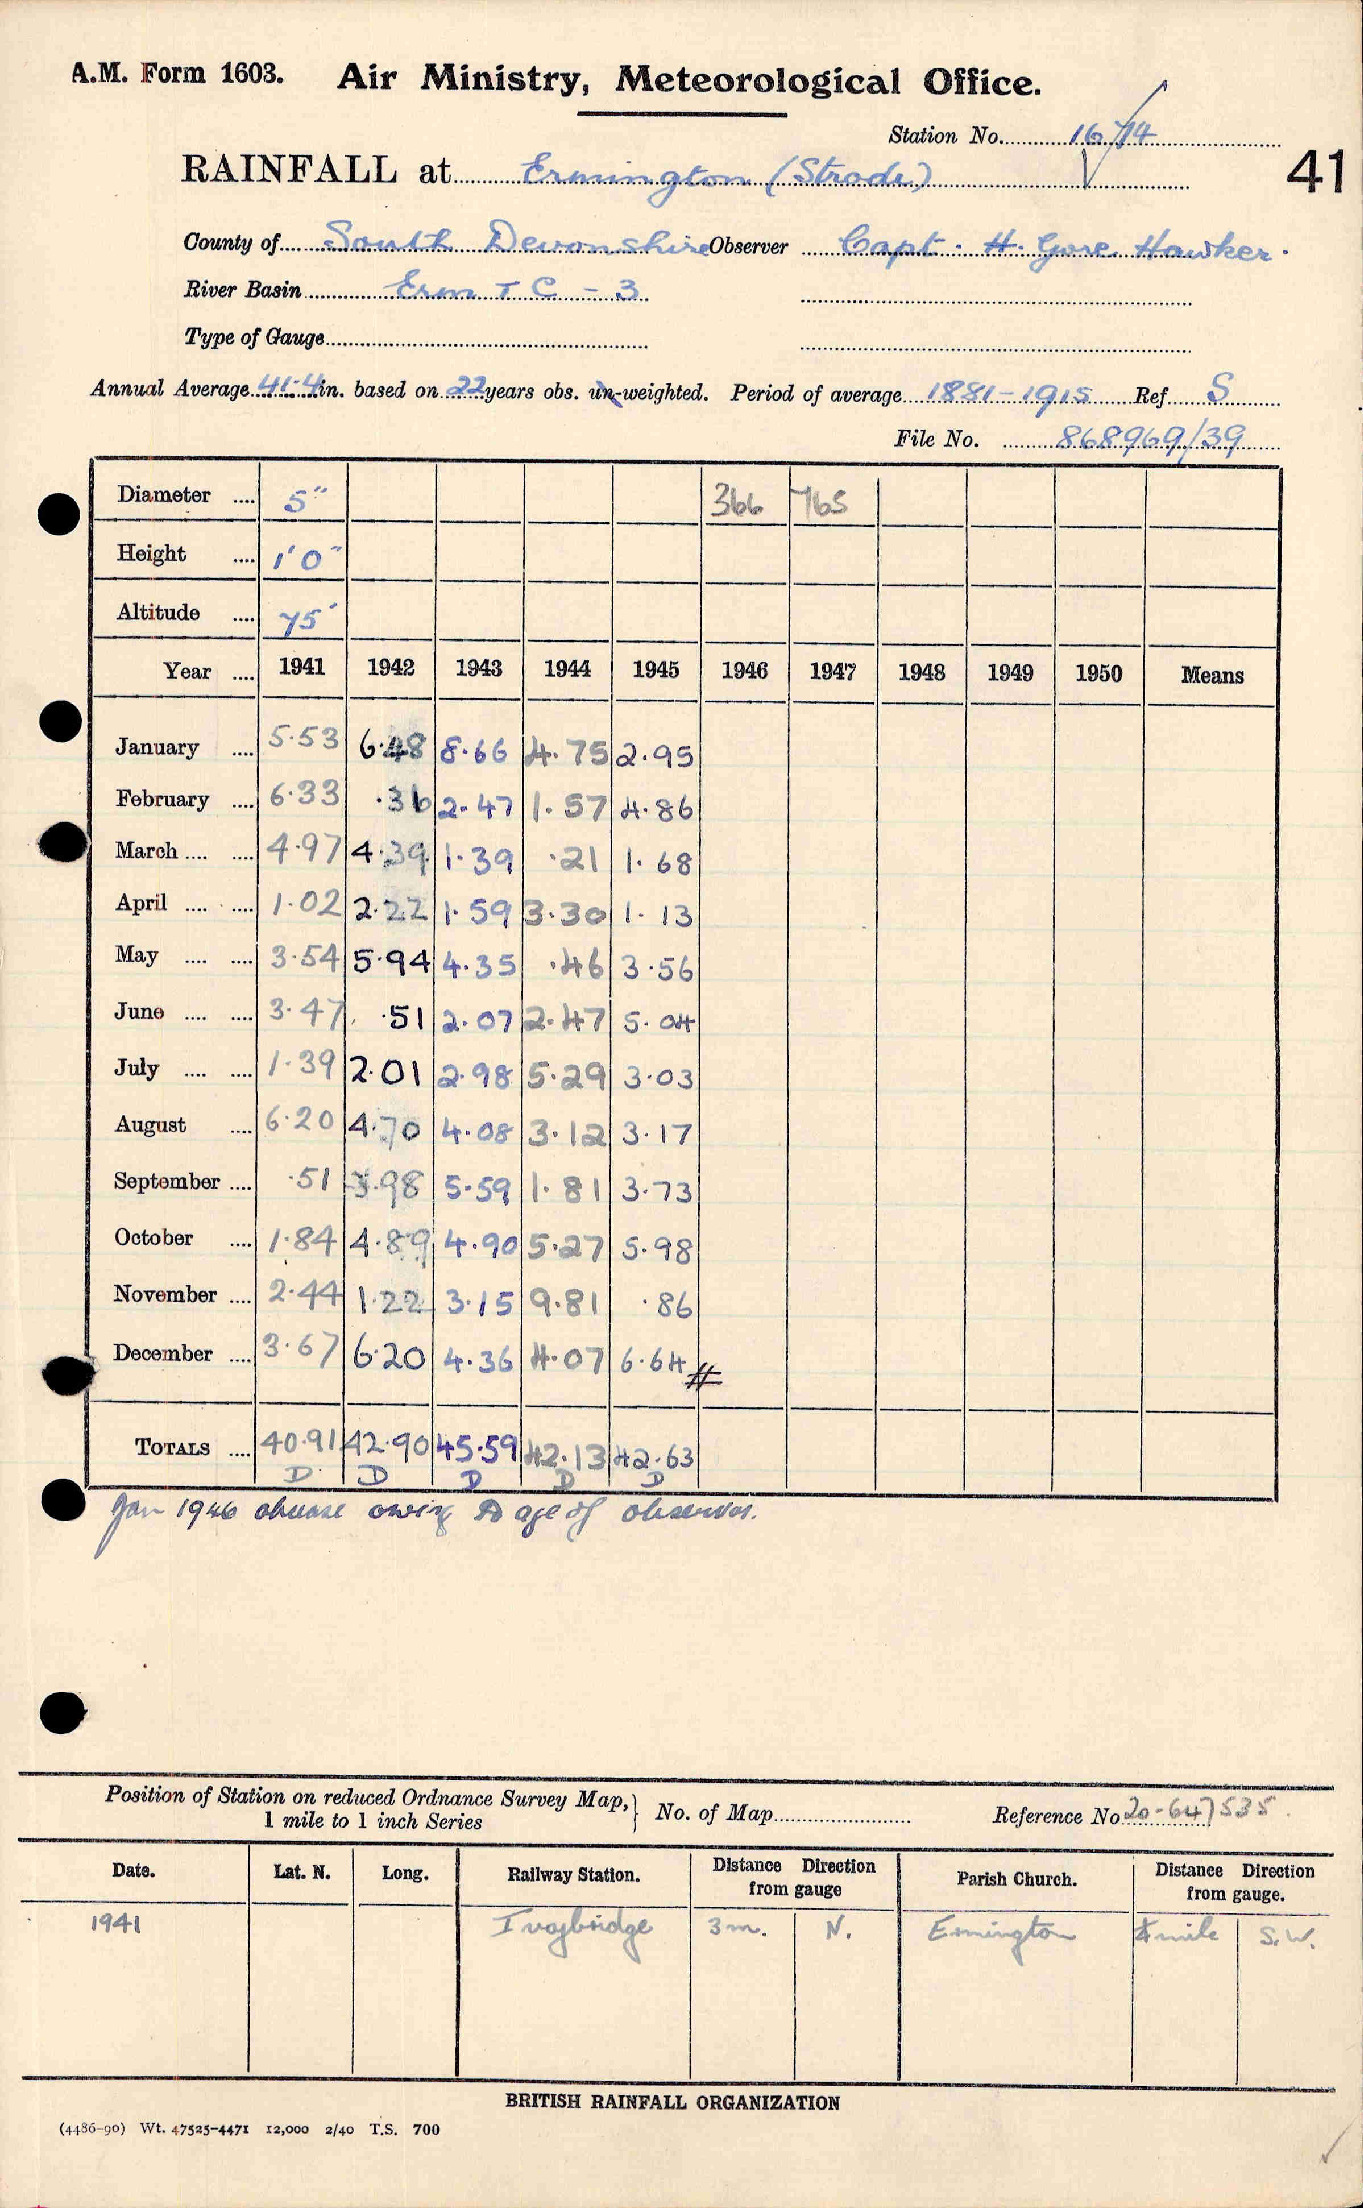 A.M. Form 1603. Air Ministry, Meteorological Office.
Station No. 1674
41
RAINFALL at Ermington (Strode)
County of South Devonshire Observer Capt. H. Gore Hawker.
River Basin Erm T C - 3
Type of Gauge
Annual Average 41.4 in. based on 22 years obs. un-weighted. Period of average 1881-1915 Ref S
File No. 868969/39
Diameter .... 5" 366 765
Height .... 1'0"
Altitude .... 75'
Year .... 1941 1942 1943 1944 1945 1946 1947 1948 1949 1950 Means
January .... 5.53 6.48 8.66 4.75 2.95
February .... 6.33 .36 2.47 1.57 4.86
March .... .... 4.97 4.39 1.39 .21 1.68
April .... .... 1.02 2.22 1.59 3.30 1.13
May .... .... 3.54 5.94 4.35 .46 3.56
June .... .... 3.47 .51 2.07 2.47 5.04
July .... .... 1.39 2.01 2.98 5.29 3.03
August .... 6.20 4.70 4.08 3.12 3.17
September .... .51 3.98 5.59 1.81 3.73
October .... 1.84 4.89 4.90 5.27 5.98
November .... 2.44 1.22 3.15 9.81 .86
December .... 3.67 6.20 4.36 4.07 6.64
TOTALS .... 40.91 42.90 45.59 42.13 42.63
D D D D D
Jan 1946 owing to age of observer.
Position of Station on reduced Ordnance Survey Map, 1 mile to 1 inch Series } No. of Map Reference No 20-647535
Date. Lat. N. Long. Railway Station. Distance Direction from gauge Parish Church. Distance Direction from gauge.
1941 Ivybridge 3m. N. Ermington mile S.W.
BRITISH RAINFALL ORGANIZATION
(4486-90) Wt. 47525-4471 12,000 2/40 T.S. 700